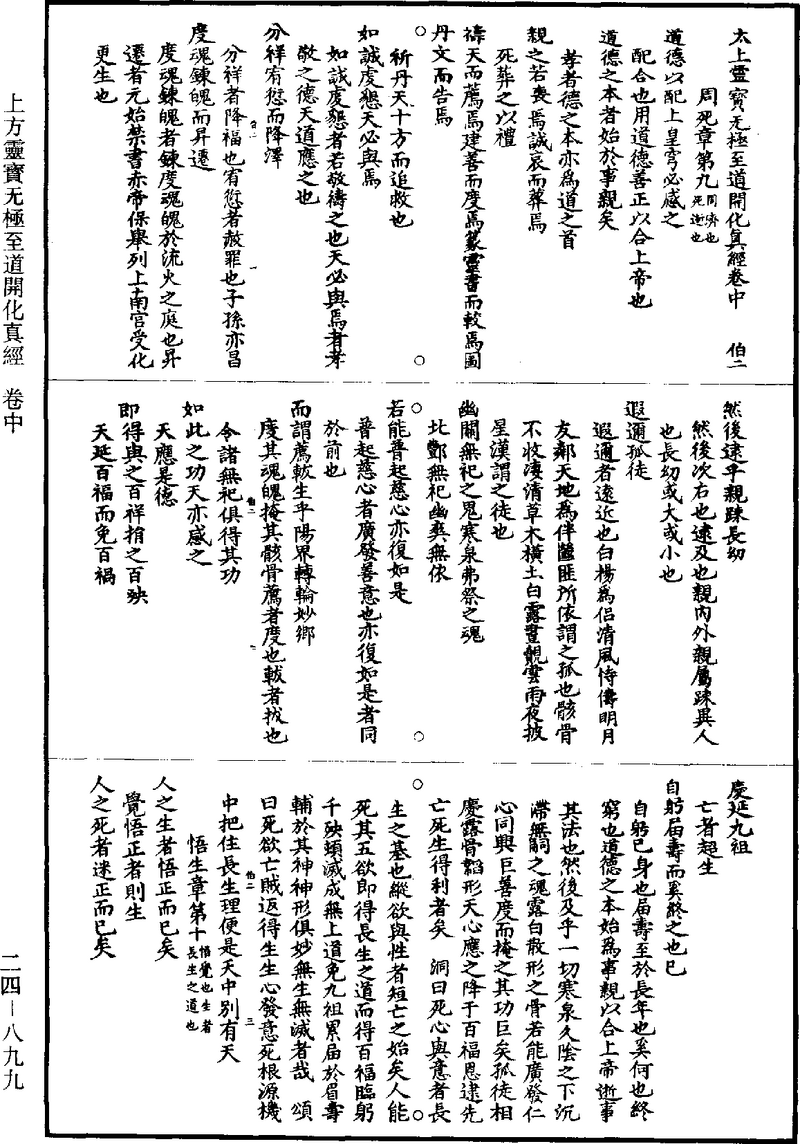 上方靈寶无極至道開化真經 卷中
二四－八九九
太上靈寶无極至道開化真經卷中 伯二
周死章第九 周濟也死逝也
道德以配上皇穹必感之
配合也用道德善正以合上帝也
道德之本者始於事親矣
孝者德之本亦為道之首
親之若喪焉誠哀而葬焉
死葬之以禮
禱天而薦焉建善而度焉篆靈書而較焉圖
丹文而告焉
祈丹天十方而追救也
如誠虔懇天必與焉
如誠虔懇者若敬禱之也天必與焉者孝
敬之德天道應之也
分祥宥愆而降澤
分祥者降福也宥愆者赦罪也子孫亦昌
度魂鍊魄而昇遷
度魂鍊魄者鍊度魂魄於流火之庭也昇
遷者元始禁書赤帝保舉列上南宮受化
更生也
然後逮乎親踈長幼
然後次右也逮及也親內外親屬踈異人
也長幼或大或小也
遐邇孤徒
遐邇者遠近也白楊為侶清風恃儔明月
友鄰天地為伴儘匪所依謂之孤也骸骨
不收凄清草木橫土白露晝覩雲雨夜披
星漢謂之徒也
幽關無祀之鬼寒泉弗祭之魂
北酆無祀幽爽無依
若能普起慈心亦復如是
普起慈心者廣發善意也亦復如是者同
於前也
而謂薦軷生乎陽界轉輪妙鄉
度其魂魄掩其骸骨薦者度也軷者拔也
令諸無祀俱得其功
如此之功天亦感之
天應是德
即得與之百祥捐之百殃
天延百福而免百禍
慶延九祖
亡者超生
自躬屆壽而奚終之也已
自躬已身也屆壽至於長年也奚何也終
窮也道德之本始為事親以合上帝逝事
其法也然後及乎一切寒泉久陰之下沉
滯無嗣之魂露白散形之骨若能廣發仁
心同興巨善度而掩之其功巨矣孤徒相
慶露骨韜形天心應之降于百福恩逮先
亡死生得利者矣 洞曰死心與意者長
生之基也縱欲與性者短亡之始矣人能
死其五欲即得長生之道而得百福臨躬
千殃頻滅成無上道免九祖累屆於眉壽
輔於其神神形俱妙無生無滅者哉 頌
曰死欲亡賊返得生生心發意死根源機
中把住長生理便是天中別有天
悟生章第十 悟覺也生者長生之道也
人之生者悟正而已矣
覺悟正者則生
人之死者迷正而已矣